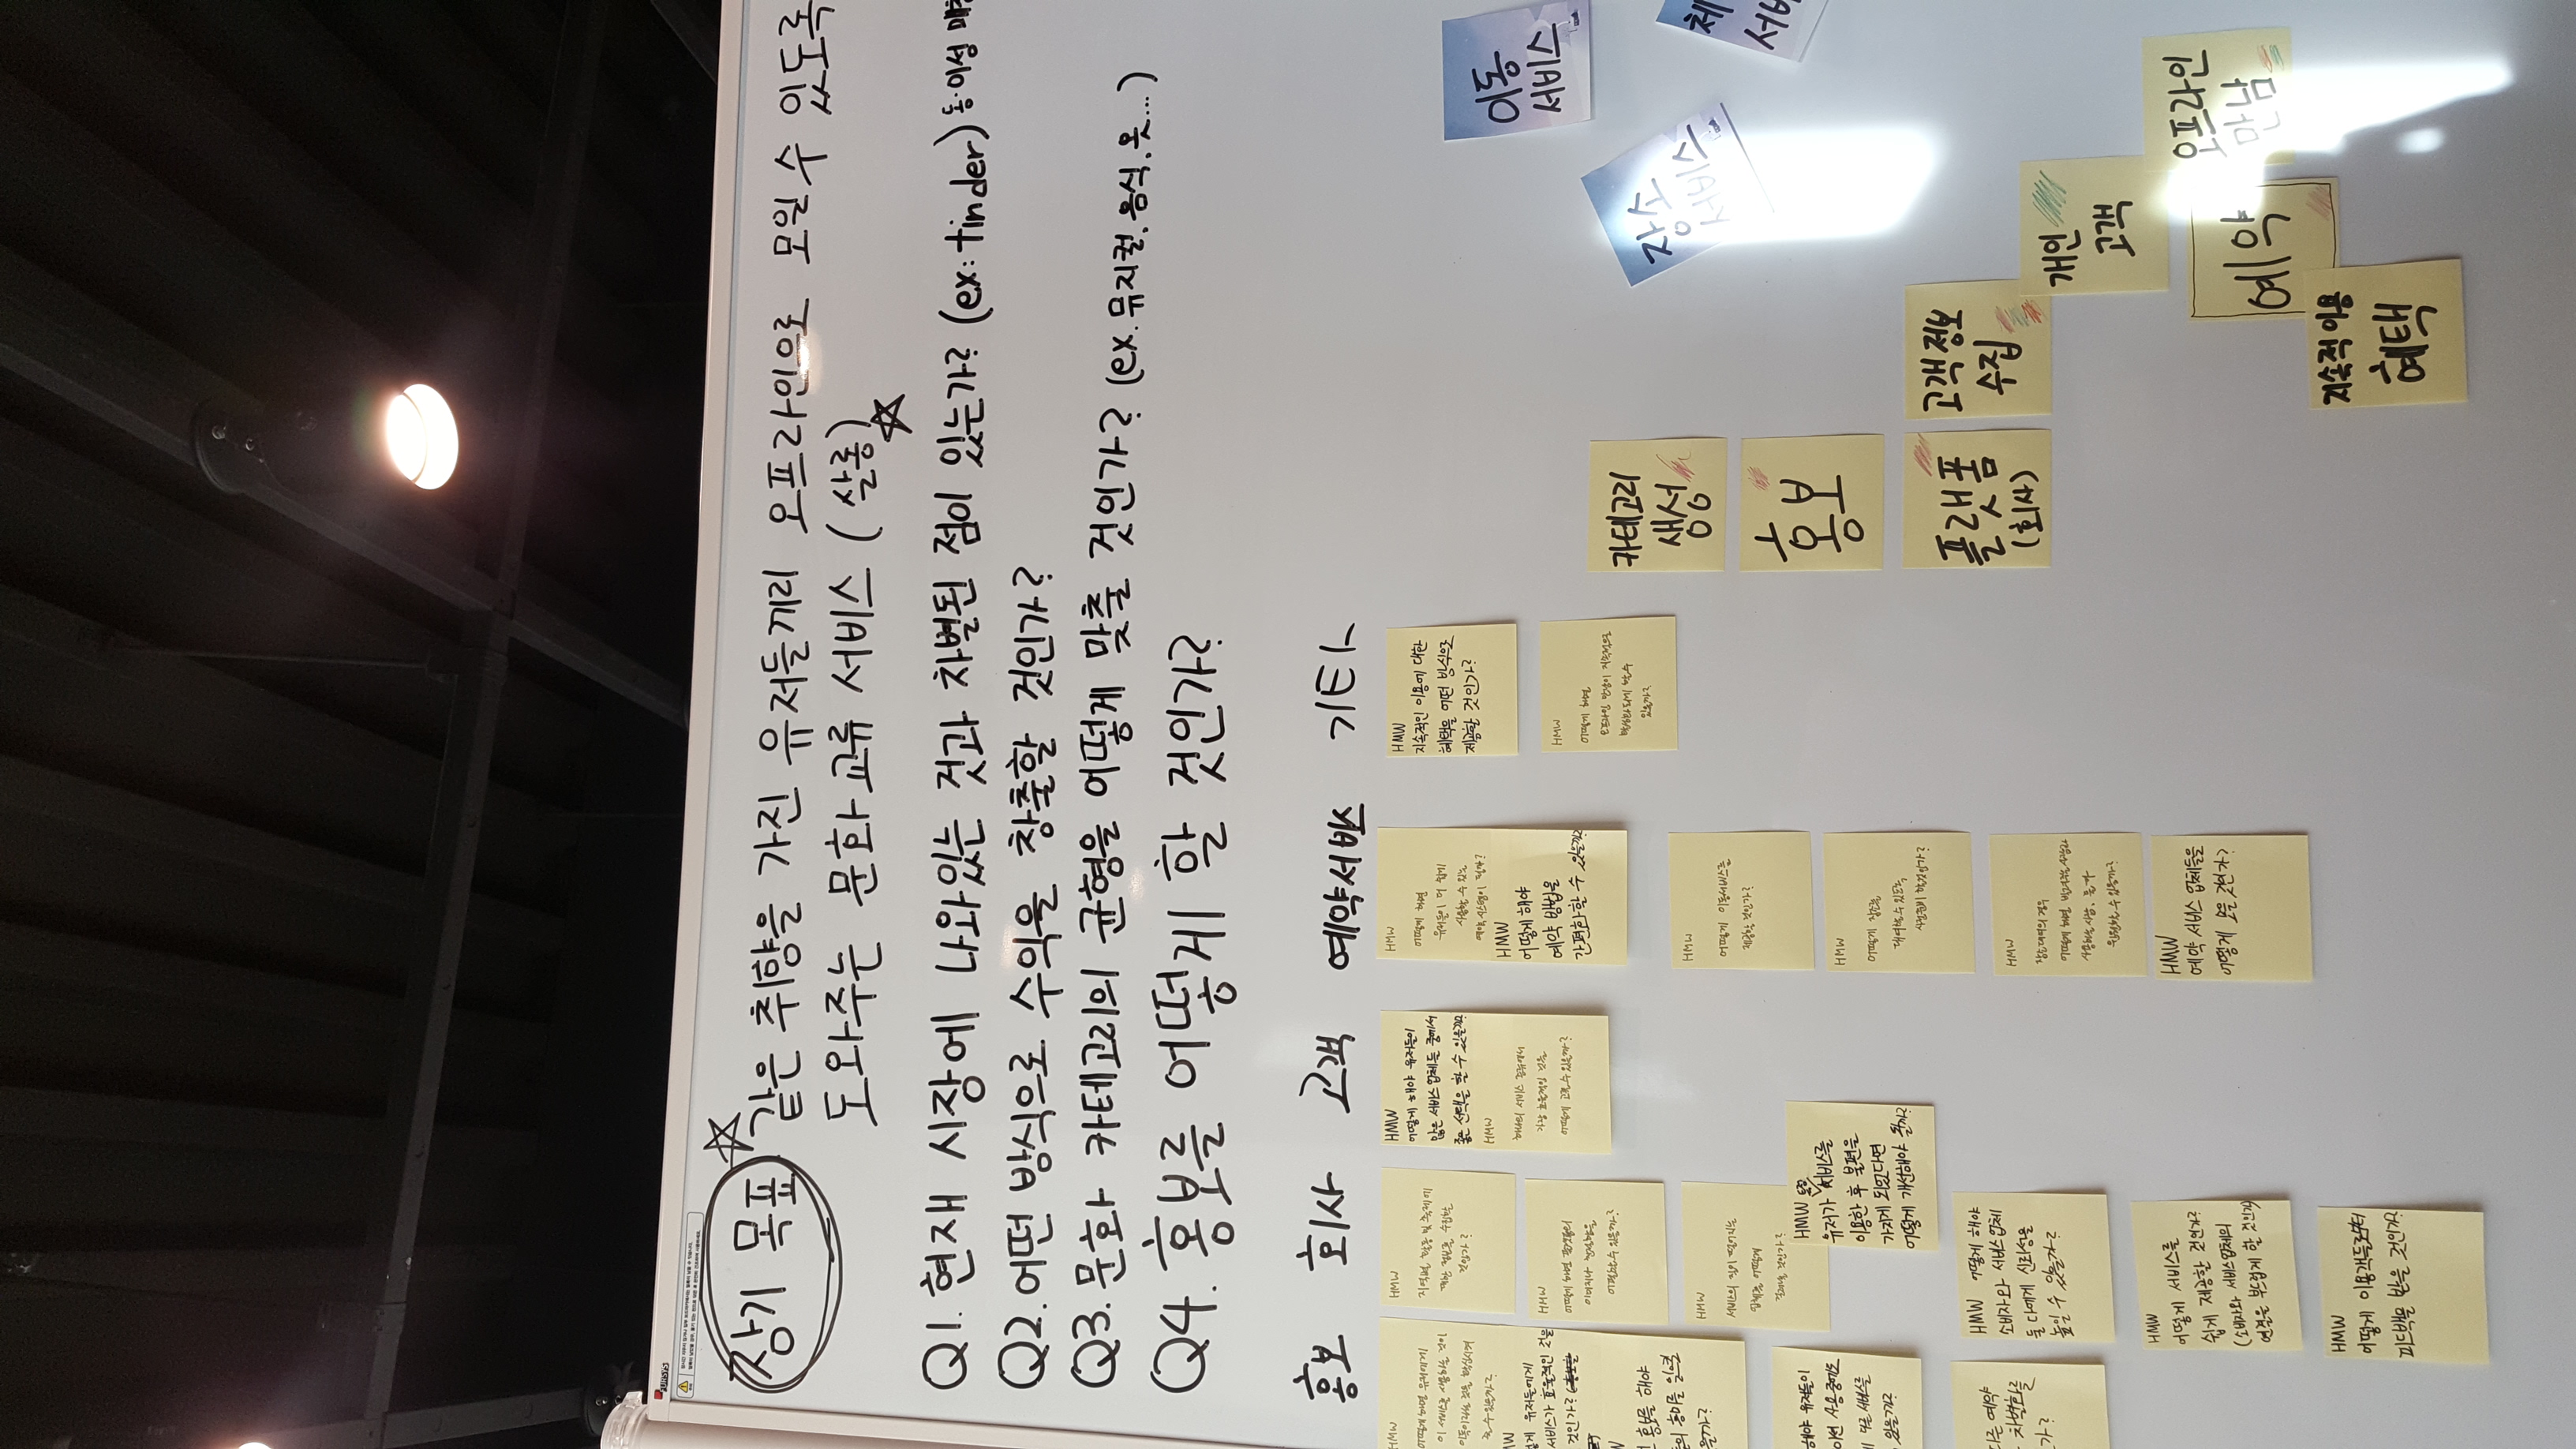 FURSYS
장기 목표
같은 취향을 가진 유저들끼리 오프라인으로 모일 수 있도록
도와주는 문화교류 서비스 (살롱)
Q1. 현재 시장에 나와있는 것과 차별된 점이 있는가? (ex: tinder) 동·이성
Q2. 어떤 방식으로 수익을 창출할 것인가?
Q3. 문화 카테고리의 균형을 어떻게 맞출 것인가? (ex. 뮤지컬, 음식, 옷...)
Q4. 홍보를 어떻게 할 것인가?
홍보 회사 고객 예약서비스 기타
HMW
어떻게 하면 유저에게
이 서비스를 사용하는 것이
수 있을까?
유저들에게
서비스가 효율적인 것을
것인가?
홍보를 해야
흥미를
해야 유저들이
사용중에도
다른 서비스를
있을까?
다른 예약
차별화를
HMW
지역별 활동 및 축제에
대한 정보를 수집할
것인가?
HMW
어떻게 하면
수 있을까?
HMW
서비스의 질이 떨어지는
업체를 어떻게
것인가?
HMW
유저가 특정 서비스를
이용한 후 불편을
가지게 되었다면
어떻게 개선해야 될까?
HMW 어떻게 해야
소비자와 서비스 업체
둘 다에게 신뢰성을
높일 수 있을까?
HMW
어떻게 서비스를
쉽게 제공할 것인가?
(소비자와 서비스업체의
연결을 부드럽게 할 것인가)
HMW
어떻게 이용객들로부터
피드백을 받을 것인가?
HMW
어떻게 해야 유저들이
많은 서비스 업체들 중에서
좋은 선택을 할 수 있을까?
HMW
하나의 서비스 종류에서
가장 효율적인 것을
어떻게 고를 수 있을까?
HMW
어떻게 하면
유저들이 더 쉽게
사용할 수 있는
예약 시스템이 될까?
HMW
어떻게 해야
예약 방법을
간편화할 수 있을까?
HMW
어떻게 이동서비스를
제공할 것인가?
HMW
어떻게 장소를
대여할 수 있도록
사전준비 할것인가?
HMW
장소대여의 경우
어떻게 하면 빌려주는 사람과
사용하는 사람, 둘 다
수 있을까?
HMW
예약 서비스 업체들을
어떻게 모을 것인가?
HMW
지속적인 이용에 대한
혜택을 어떤 방식으로
제공할 것인가?
HMW
어떻게 하면
오프라인 만남이 지속적으로
할 수
있을까?
카테고리
생성
홍보
플랫폼
(회사)
고객 정보
수집
개인
고객
예약
오프라인
만남
지속적 이용
혜택
이동
서비스
장소
서비스